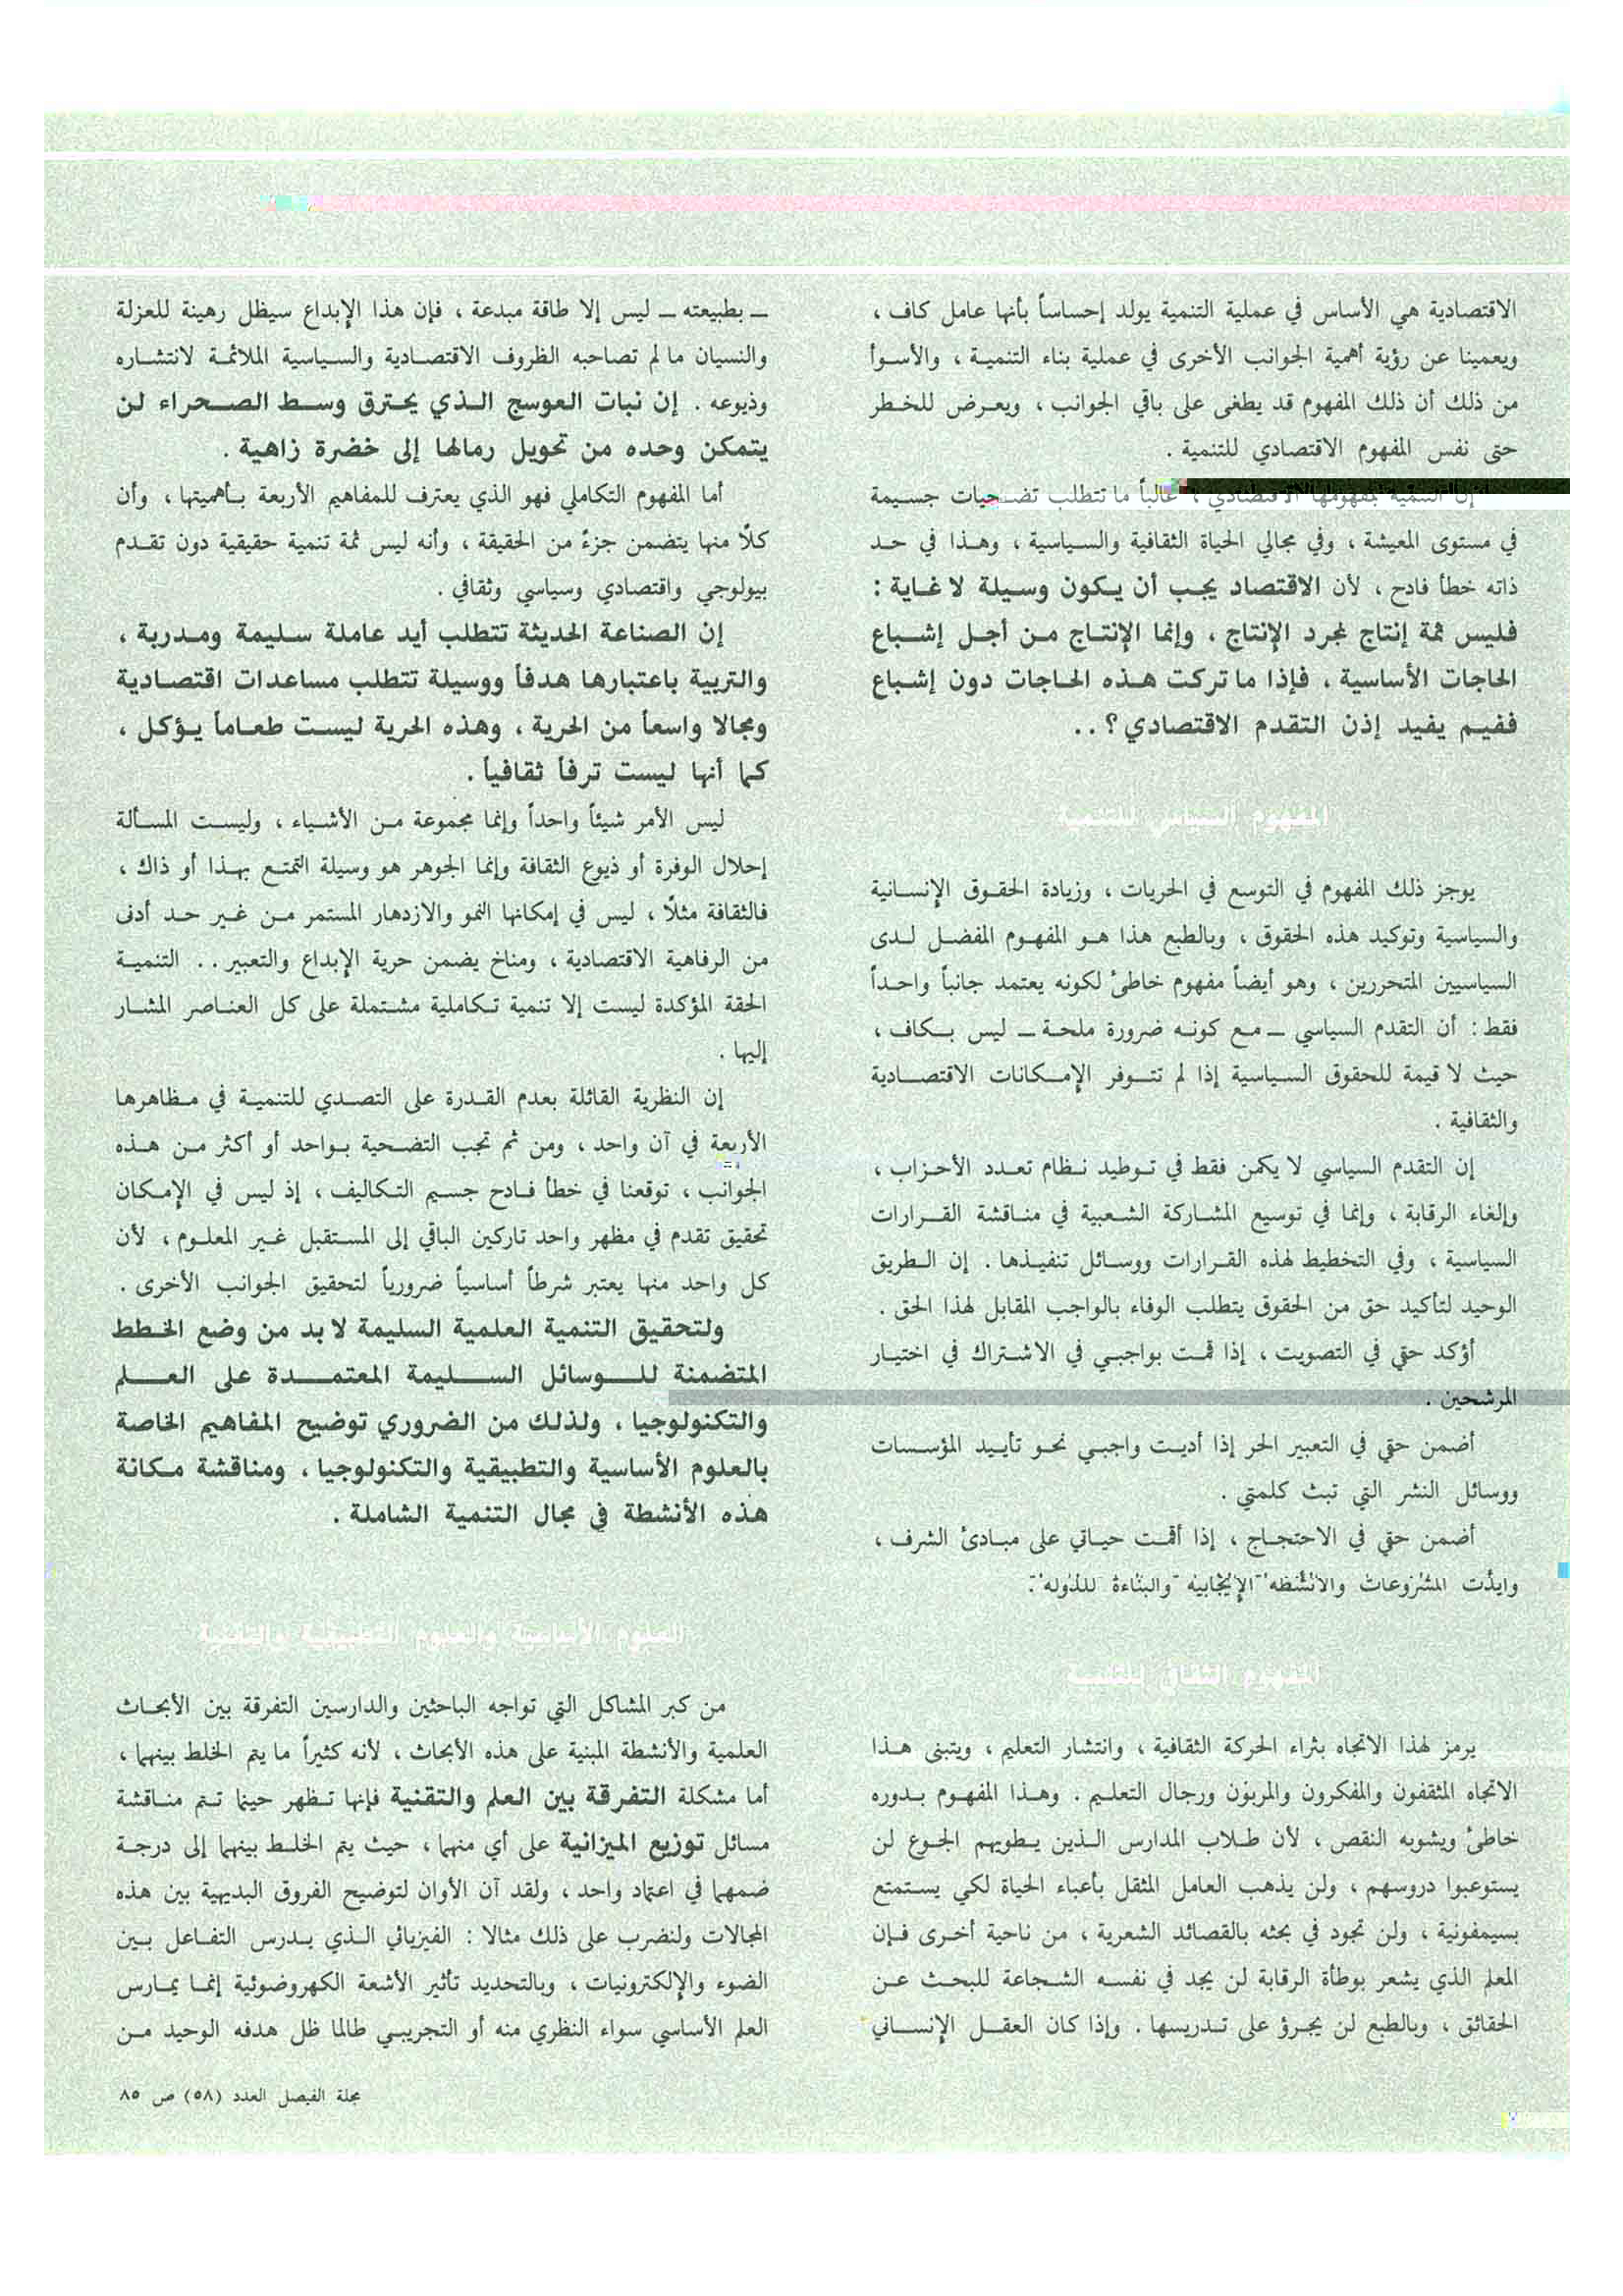 الاقتصادية هي الأساس في عملية التنمية يولد إحساساً بأنها عامل كاف ،
ويعمينا عن رؤية أهمية الجوانب الأخرى في عملية بناء التنمية ، والأسوأ
من ذلك أن ذلك المفهوم قد يطغى على باقي الجوانب ، ويعرض للخطر
حتى نفس المفهوم الاقتصادي للتنمية .
إن التنمية بمفهومها الاقتصادي ، غالباً ما تتطلب تضحيات جسيمة
في مستوى المعيشة ، وفي مجالي الحياة الثقافية والسياسية ، وهذا في حد
ذاته خطأ فادح ، لأن الاقتصاد يجب أن يكون وسيلة لا غاية :
فليس ثمة إنتاج لمجرد الإنتاج ، وإنما الإنتاج من أجل إشباع
الحاجات الأساسية ، فإذا ما تركت هذه الحاجات دون إشباع
ففيم يفيد إذن التقدم الاقتصادي ؟ . .
المفهوم السياسي للتنمية
يوجز ذلك المفهوم في التوسع في الحريات ، وزيادة الحقوق الإنسانية
والسياسية وتوكيد هذه الحقوق ، وبالطبع هذا هو المفهوم المفضل لدى
السياسيين المتحررين ، وهو أيضاً مفهوم خاطئ لكونه يعتمد جانباً واحداً
فقط : أن التقدم السياسي ــ مع كونه ضرورة ملحة ــ ليس بكاف ،
حيث لا قيمة للحقوق السياسية إذا لم تتوفر الإمكانات الاقتصادية
والثقافية .
إن التقدم السياسي لا يكمن فقط في توطيد نظام تعدد الأحزاب ،
وإلغاء الرقابة ، وإنما في توسيع المشاركة الشعبية في مناقشة القرارات
السياسية ، وفي التخطيط لهذه القرارات ووسائل تنفيذها . إن الطريق
الوحيد لتأكيد حق من الحقوق يتطلب الوفاء بالواجب المقابل لهذا الحق .
أؤكد حقي في التصويت ، إذا قمت بواجبي في الاشتراك في اختيار
المرشحين .
أضمن حقي في التعبير الحر إذا أديت واجبي نحو تأييد المؤسسات
ووسائل النشر التي تبث كلمتي .
أضمن حقي في الاحتجاج ، إذا أقمت حياتي على مبادئ الشرف ،
وأيدت المشروعات والأنشطة الإيجابية والبناءة للدولة .
المفهوم الثقافي للتنمية
يرمز لهذا الاتجاه بثراء الحركة الثقافية ، وانتشار التعليم ، ويتبنى هذا
الاتجاه المثقفون والمفكرون والمربون ورجال التعليم . وهذا المفهوم بدوره
خاطئ ويشوبه النقص ، لأن طلاب المدارس الذين يطويهم الجوع لن
يستوعبوا دروسهم ، ولن يذهب العامل المثقل بأعباء الحياة لكي يستمتع
بسيمفونية ، ولن تجود في بحثه بالقصائد الشعرية ، من ناحية أخرى فإن
المعلم الذي يشعر بوطأة الرقابة لن يجد في نفسه الشجاعة للبحث عن
الحقائق ، وبالطبع لن يجرؤ على تدريسها . وإذا كان العقل الإنساني
ــ بطبيعته ــ ليس إلا طاقة مبدعة ، فإن هذا الإبداع سيظل رهينة للعزلة
والنسيان ما لم تصاحبه الظروف الاقتصادية والسياسية الملائمة لانتشاره
وذيوعه . إن نبات العوسج الذي يحترق وسط الصحراء لن
يتمكن وحده من تحويل رمالها إلى خضرة زاهية .
أما المفهوم التكاملي فهو الذي يعترف للمفاهيم الأربعة بأهميتها ، وأن
كلاً منها يتضمن جزءً من الحقيقة ، وأنه ليس ثمة تنمية حقيقية دون تقدم
بيولوجي واقتصادي وسياسي وثقافي .
إن الصناعة الحديثة تتطلب أيد عاملة سليمة ومدربة ،
والتربية باعتبارها هدفاً ووسيلة تتطلب مساعدات اقتصادية
ومجالا واسعاً من الحرية ، وهذه الحرية ليست طعاماً يؤكل ،
كما أنها ليست ترفاً ثقافياً .
ليس الأمر شيئاً واحداً وإنما مجموعة من الأشياء ، وليست المسألة
إحلال الوفرة أو ذيوع الثقافة وإنما الجوهر هو وسيلة التمتع بهذا أو ذاك ،
فالثقافة مثلاً ، ليس في إمكانها النمو والازدهار المستمر من غير حد أدنى
من الرفاهية الاقتصادية ، ومناخ يضمن حرية الإبداع والتعبير . . التنمية
الحقة المؤكدة ليست إلا تنمية تكاملية مشتملة على كل العناصر المشار
إليها .
إن النظرية القائلة بعدم القدرة على التصدي للتنمية في مظاهرها
الأربعة في آن واحد ، ومن ثم تجب التضحية بواحد أو أكثر من هذه
الجوانب ، توقعنا في خطأ فادح جسيم التكاليف ، إذ ليس في الإمكان
تحقيق تقدم في مظهر واحد تاركين الباقي إلى المستقبل غير المعلوم ، لأن
كل واحد منها يعتبر شرطاً أساسياً ضرورياً لتحقيق الجوانب الأخرى .
ولتحقيق التنمية العلمية السليمة لا بد من وضع الخطط
المتضمنة للوسائل السليمة المعتمدة على العلم
والتكنولوجيا ، ولذلك من الضروري توضيح المفاهيم الخاصة
بالعلوم الأساسية والتطبيقية والتكنولوجيا ، ومناقشة مكانة
هذه الأنشطة في مجال التنمية الشاملة .
العلوم الأساسية والعلوم التطبيقية والتقنية
من كبر المشاكل التي تواجه الباحثين والدارسين التفرقة بين الأبحاث
العلمية والأنشطة المبنية على هذه الأبحاث ، لأنه كثيراً ما يتم الخلط بينهما ،
أما مشكلة التفرقة بين العلم والتقنية فإنها تظهر حينما تتم مناقشة
مسائل توزيع الميزانية على أي منهما ، حيث يتم الخلط بينهما إلى درجة
ضمهما في اعتماد واحد ، ولقد آن الأوان لتوضيح الفروق البديهية بين هذه
المجالات ولنضرب على ذلك مثالا : الفيزيائي الذي يدرس التفاعل بين
الضوء والإلكترونيات ، وبالتحديد تأثير الأشعة الكهروضوئية إنما يمارس
العلم الأساسي سواء النظري منه أو التجريبي طالما ظل هدفه الوحيد من
مجلة الفيصل العدد (٥٨) ص ٨٥